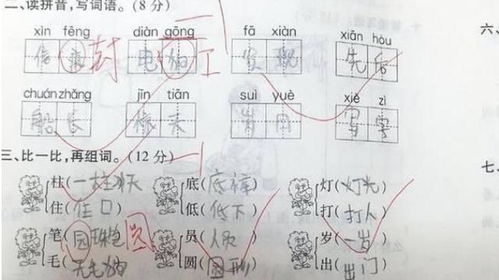 二、读拼音,写词语。(8分) 一
xìn fēng diàn gōng fā xiàn xiān hòu
信 封 电 工 发现 先后
chuán zhǎng jīn tiān suì yuè xiě zì
船长 今天 岁月 写字
三、比一比,再组词。(12分) 一
柱(一柱木天) 底(底裤) 灯(灯光)
住(住口) 低(低下) 打(打人)
笔(圆珠笔) 圆 员(人员) 岁(一岁)
毛( ) 圆(圆形) 出(出门)
六、